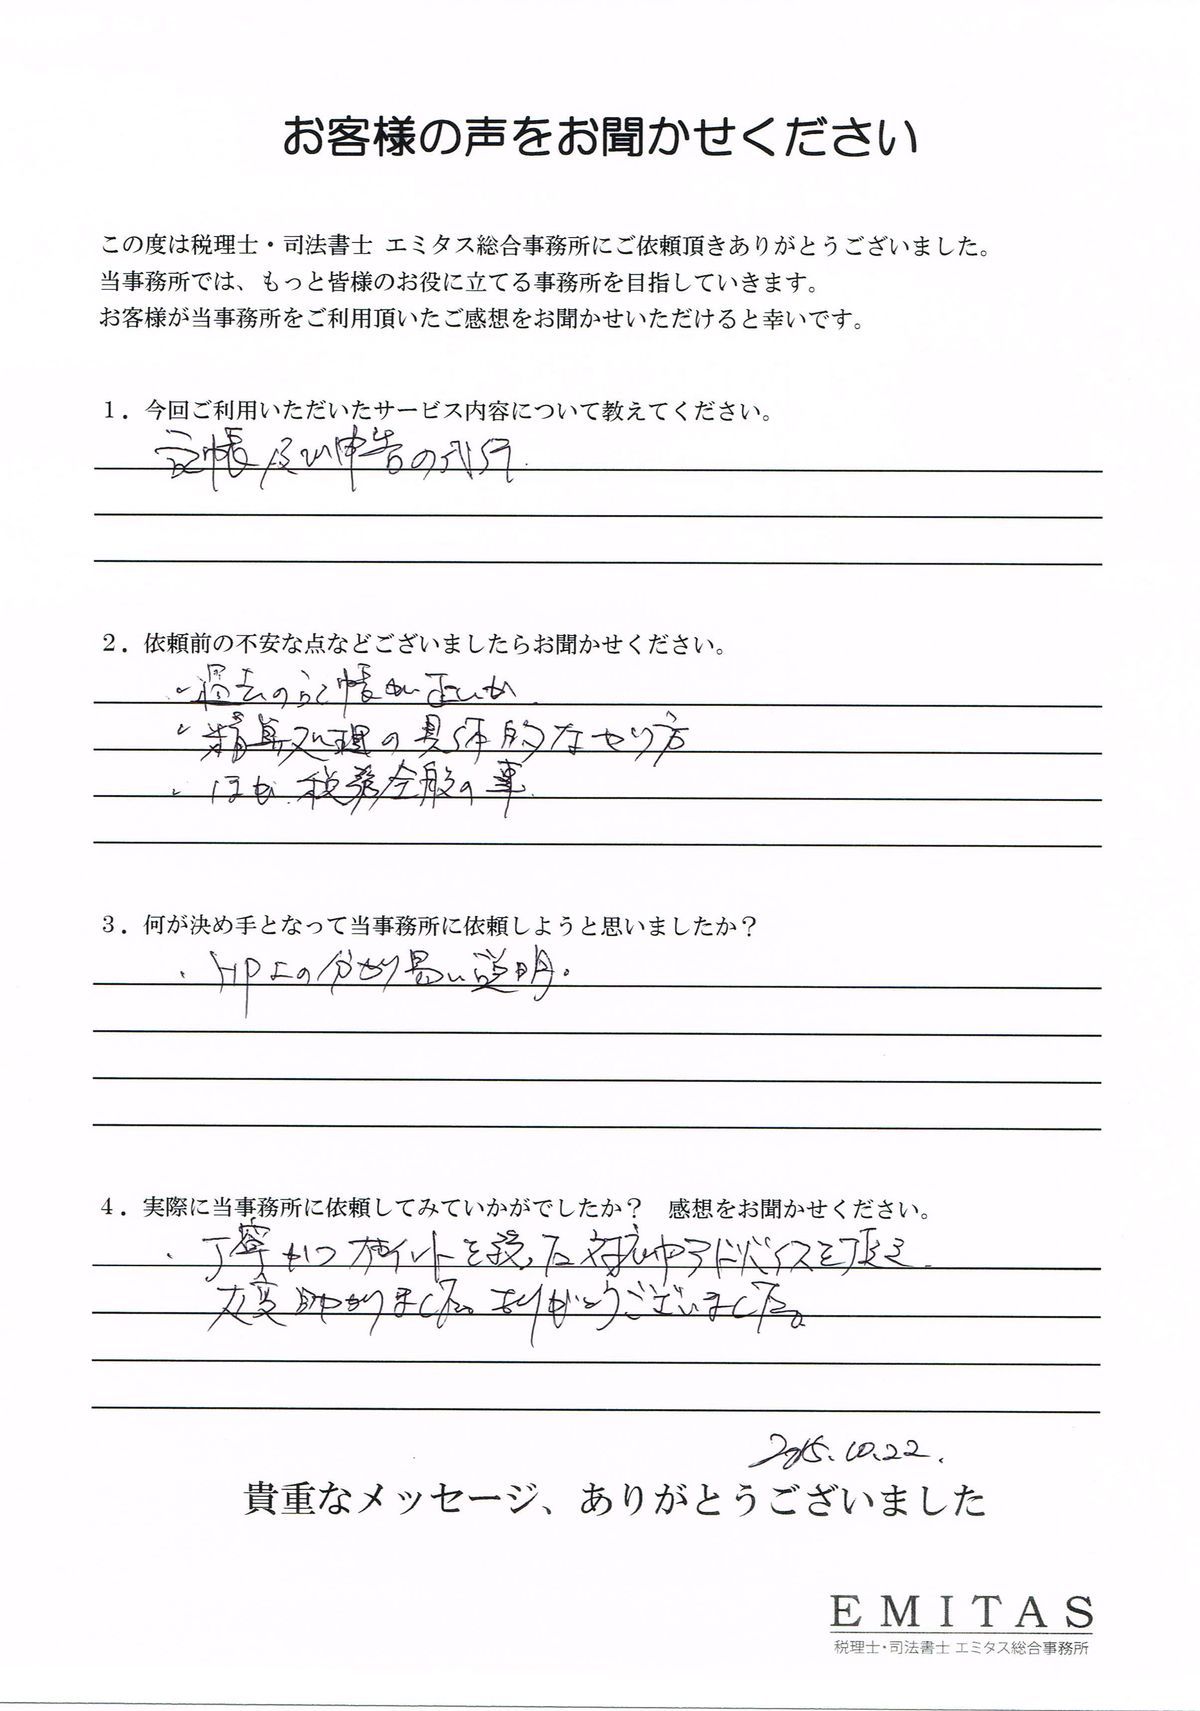 お客様の声をお聞かせください
この度は税理士・司法書士 エミタス総合事務所にご依頼頂きありがとうございました。
当事務所では、もっと皆様のお役に立てる事務所を目指していきます。
お客様が当事務所をご利用頂いたご感想をお聞かせいただけると幸いです。
１．今回ご利用いただいたサービス内容について教えてください。
記帳及び申告の代行.
２．依頼前の不安な点などございましたらお聞かせください。
・過去の記帳が正しいか
・精算処理の具体的なやり方
・ほか、税務全般の事.
３．何が決め手となって当事務所に依頼しようと思いましたか？
・HP上の分かり易い説明。
４．実際に当事務所に依頼してみていかがでしたか？ 感想をお聞かせください。
・丁寧かつポイントを絞った対応やアドバイスを頂き.
大変助かりました。ありがとうございました。
2015.10.22.
貴重なメッセージ、ありがとうございました
EMITAS
税理士・司法書士 エミタス総合事務所